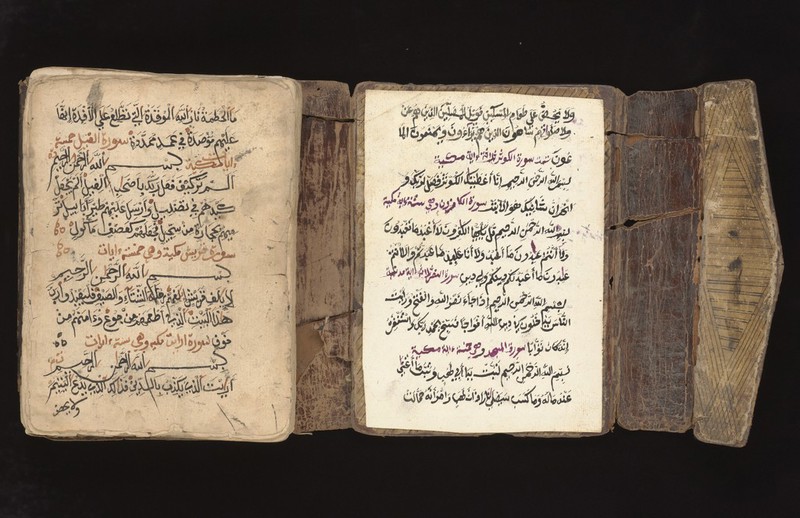 ما الحطمة نار الله الموقدة التي تطلع على الأفدة إنها
عليهم موصدة في عمد ممددة سورة الفيل خمسة
ءاية مكية بسم الله الرحمن الرحيم
الم تر كيف فعل ربك باصحاب الفيل الم يجعل
كيدهم في تضليل وارسل عليهم طيرا ابابيل تر
ميهم بحجارة من سجيل فجعلهم كعصف ماكول
سورة قريش مكية وهي خمسة ءايات
بسم الله الرحمن الرحيم
لايلف قريش الفهم رحلة الشتاء والصيف فليعبدوا رب
هذا البيت الذي اطعمهم من جوع وءامنهم من
خوف سورة ارايت مكية وهي ستة ءايات
بسم الله الرحمن الرحيم
ارايت الذي يكذب بالدين فذلك الذي يدع اليتيم
ولا يحض
ولا يحض على طعام المسكين فويل للمصلين الذين هم عن
صلاتهم ساهون الذين هم يراءون ويمنعون الما
عون سورة الكوثر ءاية مكية
بسم الله الرحمن الرحيم انا اعطينك الكوثر فصل لربك و
انحر ان شانيك هو الابتر سورة الكافرون وهي ستة ءاية مكية
بسم الله الرحمن الرحيم قل يايها الكفرون لا اعبد ما تعبدون
ولا انتم عبدون ما اعبد ولا انا عابد ما عبدتم ولا انتم
عبدون ما اعبد لكم دينكم ولي دين سورة النصر ءاية
بسم الله الرحمن الرحيم اذا جاء نصر الله والفتح ورايت
الناس يدخلون في دين الله افواجا فسبح بحمد ربك واستغفره
انه كان توابا سورة المسد وهي خمسة ءاية مكية
بسم الله الرحمن الرحيم تبت يدا ابي لهب وتب ما اغنى
عنه ماله وما كسب سيصلى نارا ذات لهب وامراته حمالت